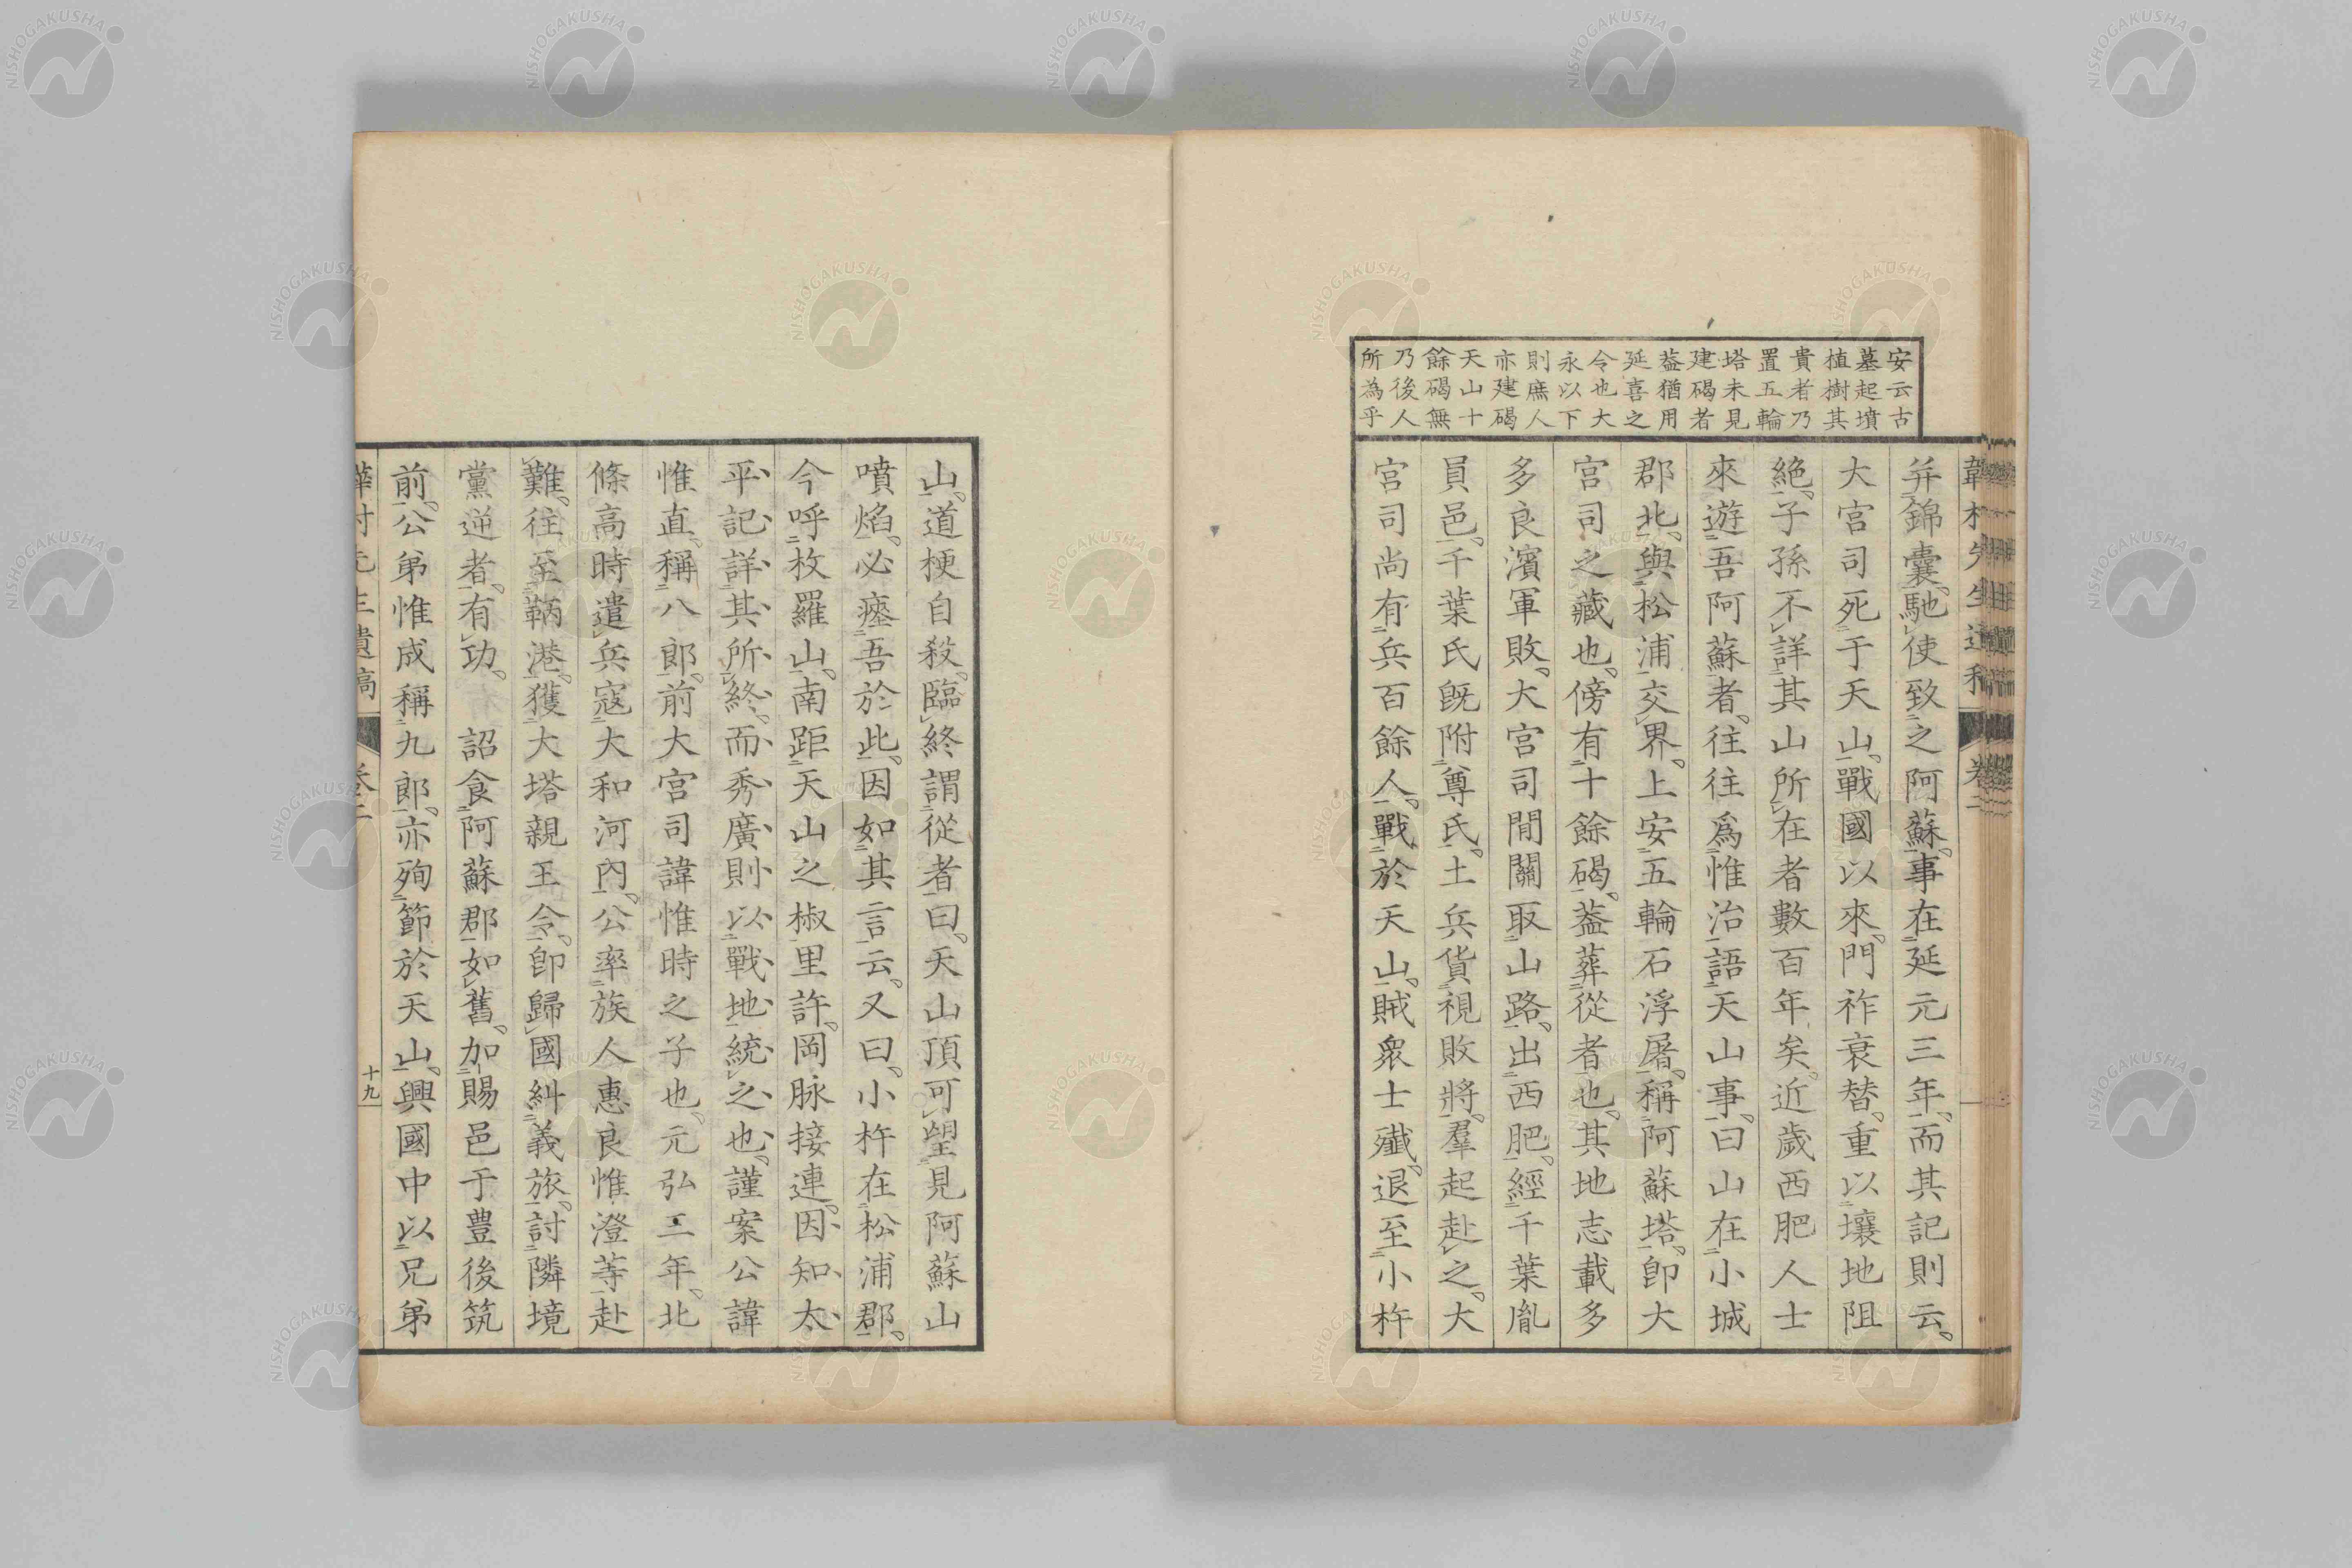 安云古
墓起墳
植樹其
貴者乃
置五輪
塔未見
建碣者
葢猶用
延喜之
令也大
永以下
則庶人
亦建碣
天山十
餘碣無
乃後人
所為乎
卷二
并錦囊馳使致之阿蘇事在延元三年而其記則云
大宮司死于天山戰國以來門祚衰替重以壤地阻
絶子孫不詳其山所在者數百年矣近歲西肥人士
來遊吾阿蘇者往往爲惟治語天山事曰山在小城
郡北與松浦交界上安五輪石浮屠稱阿蘇塔卽大
宮司之藏也傍有十餘碣葢葬從者也其地志載多
多良濱軍敗大宮司閒關取山路出西肥經千葉胤
員邑千葉氏旣附尊氏土兵貨視敗將羣起赴之大
宮司尚有兵百餘人戰於天山賊衆士殲退至小杵
山道梗自殺臨終謂從者曰天山頂可望見阿蘇山
噴焰必瘞吾於此因如其言云又曰小杵在松浦郡
今呼枚羅山南距天山之椒里許岡脉接連因知太
平記詳其所終而秀廣則以戰地統之也謹案公諱
惟直稱八郎前大宮司諱惟時之子也元弘二年北
條高時遣兵寇大和河內公率族人惠良惟澄等赴
難往至鞆港獲大塔親王令卽歸國糾義旅討隣境
黨逆者有功 詔食阿蘇郡如舊加賜邑于豊後筑
前公弟惟成稱九郎亦殉節於天山興國中以兄弟
先生遺稿 卷二 十九